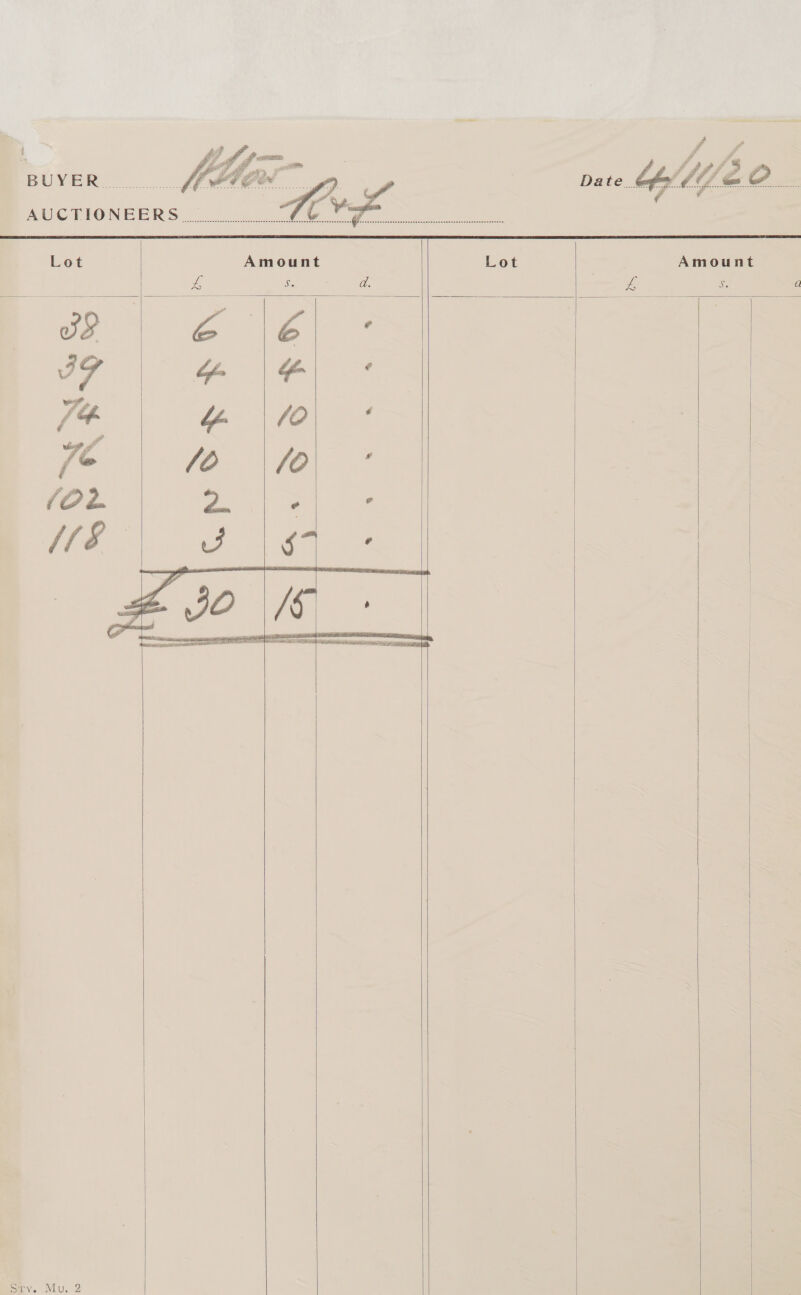 BUYER
Date 4/11/20
AUCTIONEERS
Lot Amount Lot Amount
£ s. d. £ s. d
38 6 6 "
39 4 4 "
74 4 10 "
76 10 10 "
102 2 " "
118 3 5 "
£ 30 15 "
Srv. Mu. 2